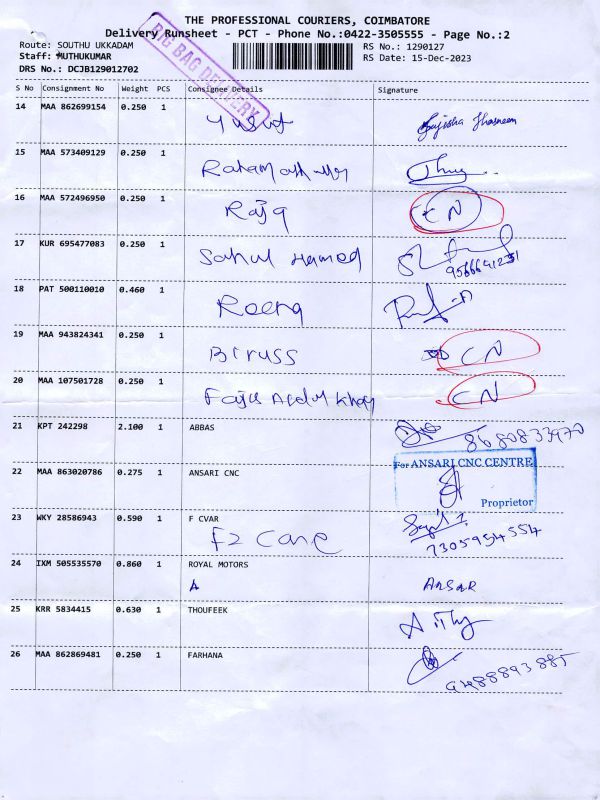 THE PROFESSIONAL COURIERS, COIMBATORE
Delivery Runsheet - PCT - Phone No.:0422-3505555 - Page No.:2
BIG BAG DELIVERY
Route: SOUTHU UKKADAM RS No.: 1290127
Staff: MUTHUKUMAR RS Date: 15-Dec-2023
DRS No.: DCJB129012702
S No Consignment No Weight PCS Consignee Details Signature
14 MAA 862699154 0.250 1
Yusuf
15 MAA 573409129 0.250 1
16 MAA 572496950 0.250 1
Raja CN
17 KUR 695477083 0.250 1
Sahul Hamed
18 PAT 500110010 0.460 1
Reena
19 MAA 943824341 0.250 1
CN
20 MAA 107501728 0.250 1
CN
21 KPT 242298 2.100 1 ABBAS
8680833970
22 MAA 863020786 0.275 1 ANSARI CNC
For ANSARI CNC CENTRE
Proprietor
23 WKY 28586943 0.590 1 F CVAR
F2 Care
7305954554
24 IXM 505535570 0.860 1 ROYAL MOTORS
A ANSAR
25 KRR 5834415 0.630 1 THOUFEEK
26 MAA 862869481 0.250 1 FARHANA